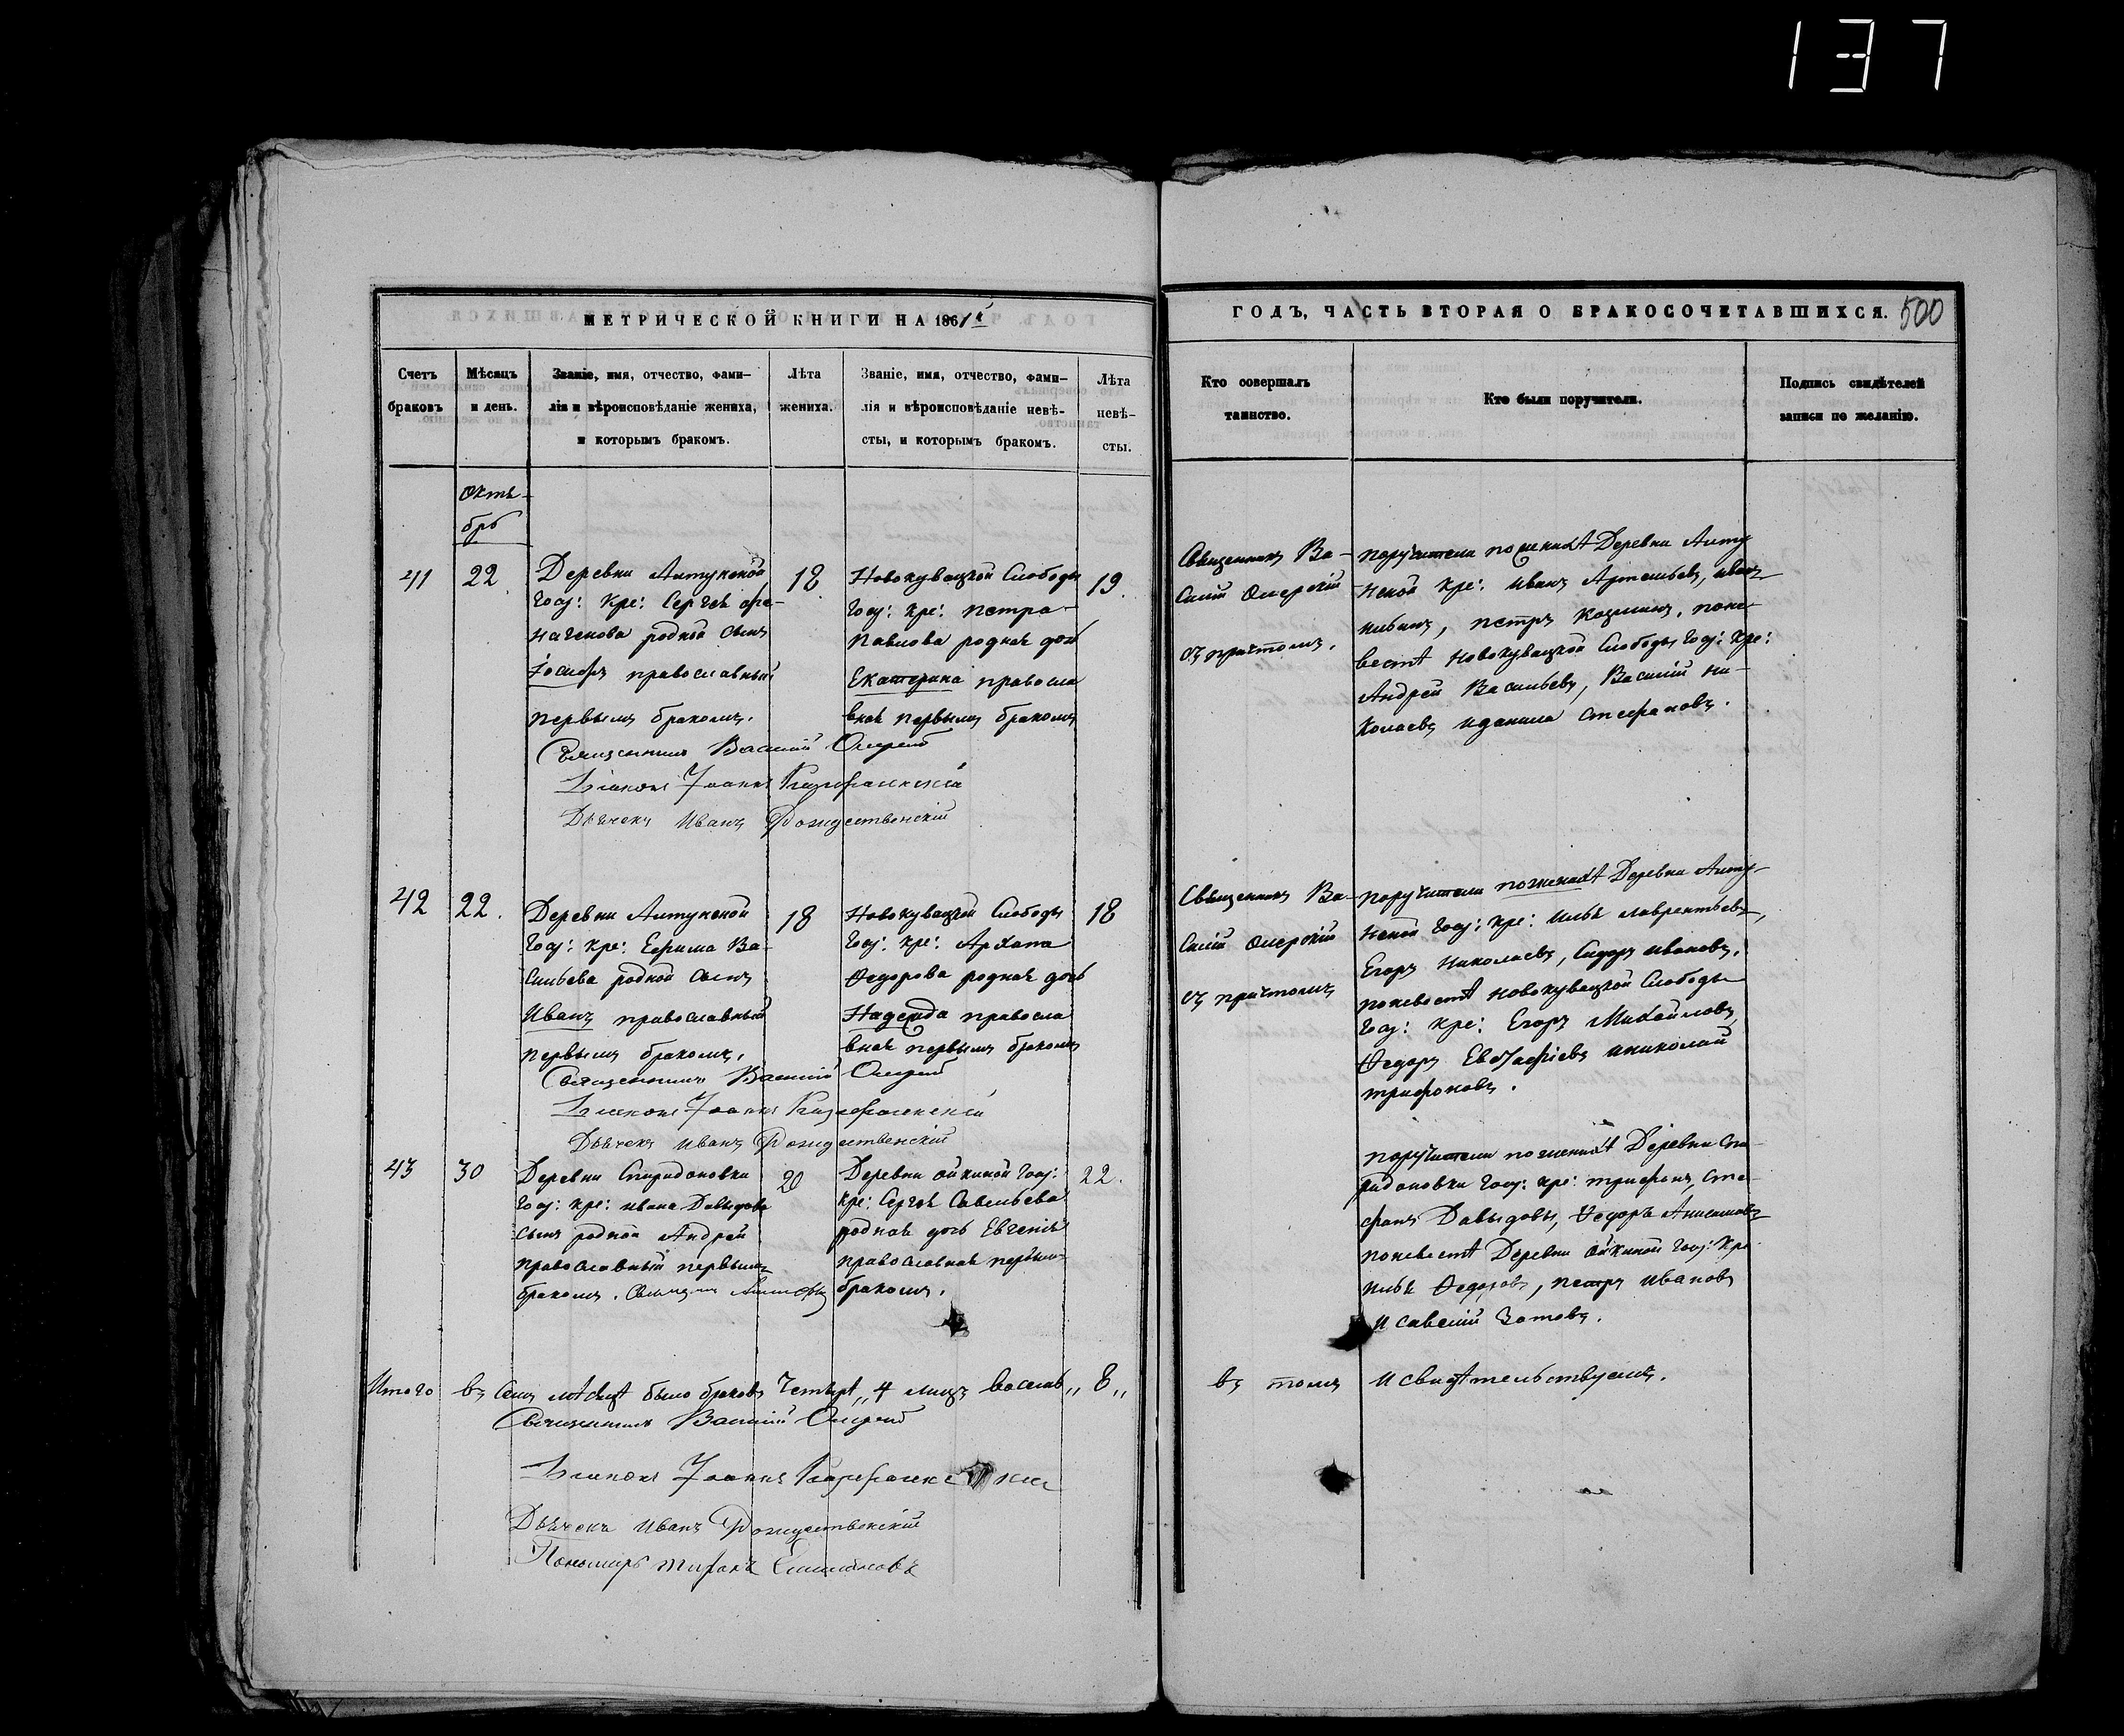 137
МЕТРИЧЕСКОЙ КНИГИ НА 1861й
ГОДЪ, ЧАСТЬ ВТОРАЯ О БРАКОСОЧЕТАВШИХСЯ. 500
Счетъ браковъ
Мѣсяцъ и день.
Званіе, имя, отчество, фами-
лія и вѣроисповѣданіе жениха,
и которымъ бракомъ.
Лѣта жениха.
Званіе, имя, отчество, фами-
лія и вѣроисповѣданіе невѣ-
сты, и которымъ бракомъ.
Лѣта невѣ-
сты.
Кто совершалъ
таинство.
Кто были поручители.
Подпись свидѣтелей
записи по желанію.
Октя-
брь
41
22
Деревни
Гос: кре: Сергѣя
родной сынъ
Іосифъ православный
первымъ бракомъ.
18
Новокувацкой Слободы
Гос: кре: Петра
Павлова родная дочь
Екатерина правосла
вная первымъ бракомъ
19.
Священникъ Ва-
силій Омерскій
съ причтомъ.
поручители по женихѣ Деревни
кре: Иванъ Артемьевъ, Иванъ
Петръ Козминъ, поне-
вестѣ Новокувацкой Слободы Гос: Кре:
Андрей Васильевъ, Василій Ни-
колаевъ и Данила Стефановъ.
Священникъ Василій
Діаконъ Іоаннъ
Дьячекъ Иванъ Рождественскій
42
22.
Деревни
Гос: кре: Ефима Ва-
сильева родной сынъ
Иванъ православный
первымъ бракомъ.
18
Новокувацкой Слободы
Гос: кре: Архипа
Ѳедорова родная дочь
Надежда правосла
вная первымъ бракомъ
18
Священникъ Ва-
силій Омерскій
съ причтомъ
поручители по женихѣ Деревни
Гос: кре: Илья Лаврентьевъ,
Егоръ Николаевъ, Сидоръ Ивановъ,
поневестѣ Новокувацкой Слободы
Гос: кре: Егоръ Михайловъ,
Ѳедоръ Евстафіевъ и Николай
Трифоновъ.
Священникъ Василій
Діаконъ Іоаннъ
Дьячекъ Иванъ Рождественскій
43
30
Деревни Спиридоновки
Гос: кре: Ивана Давыдова
сынъ родной Андрей
православный первымъ
бракомъ.
20
Деревни Ойкиной Гос:
кре: Сергѣя Савельева
родная дочь Евгенія
православная первымъ
бракомъ.
22.
поручители по женихѣ Деревни Спи-
ридоновки Гос: кре: Трифонъ, Сте-
фанъ Давыдовы, Ѳедоръ
поневестѣ Деревни Ойкиной Гос: Кре
Илья Ѳедоровъ, Петръ Ивановъ
и Савелій Зотовъ.
Итого въ семъ мѣсяцѣ было браковъ Четыре „4 лицъ восемь „8„
въ томъ и свидѣтельствуемъ.
Священникъ Василій
Діаконъ Іоаннъ
Дьячекъ Иванъ Рождественскій
Пономарь